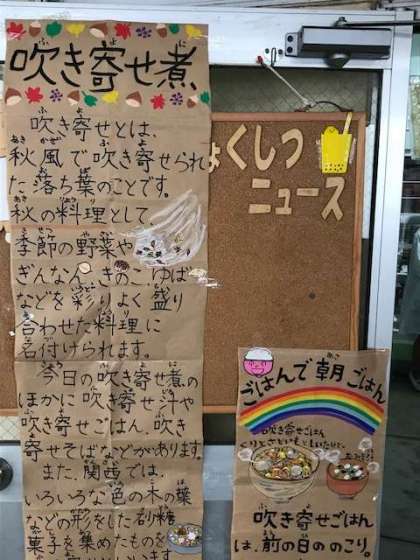 吹き寄せ煮
吹き寄せとは、
秋風で吹き寄せられ
た落ち葉のことです。
秋の料理として
季節の野菜や
ぎんなん、きのこ、ゆば
などを彩りよく盛り
合わせた料理に
名付けられます。
今日の吹き寄せ煮の
ほかに吹き寄せ汁や
吹き寄せごはん、吹き
寄せそばなどがあります。
また、関西では
いろいろな色の木の葉
などの形をした砂糖
菓子を集めたものを
ょくしつ
ニュース
ごはんで朝ごはん
吹き寄せごはん
くりとさといもとしいたけで、
吹き寄せごはん
は、前の日ののこり。